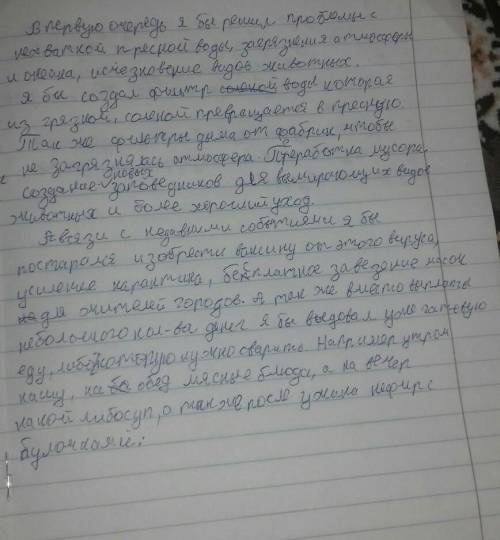 В первую очередь я бы решил проблемы с
нехваткой пресной воды, загрязнения атмосферы
и океана, исчезновение видов животных.
Я бы создал фильтр воды которая
из грязной, соленой превращается в пресную.
Так же фильтры дыма от фабрик, чтобы
не загрязнялась атмосфера. Переработка мусора,
создание новых заповедников для вымирающих видов
животных и более хороший уход.
В связи с недавними событиями я бы
постарался изобрести вакцину от этого вируса,
усиление карантина, бесплатное заведение масок
для жителей городов. А так же вместо выплаты
небольшого кол-ва денег я бы выдавал уже готовую
еду, либо которую нужно сварить. Например утром
кашу, на обед мясные блюда, а на вечер
какой либо суп, а так же после ужина кефир с
булочкой.